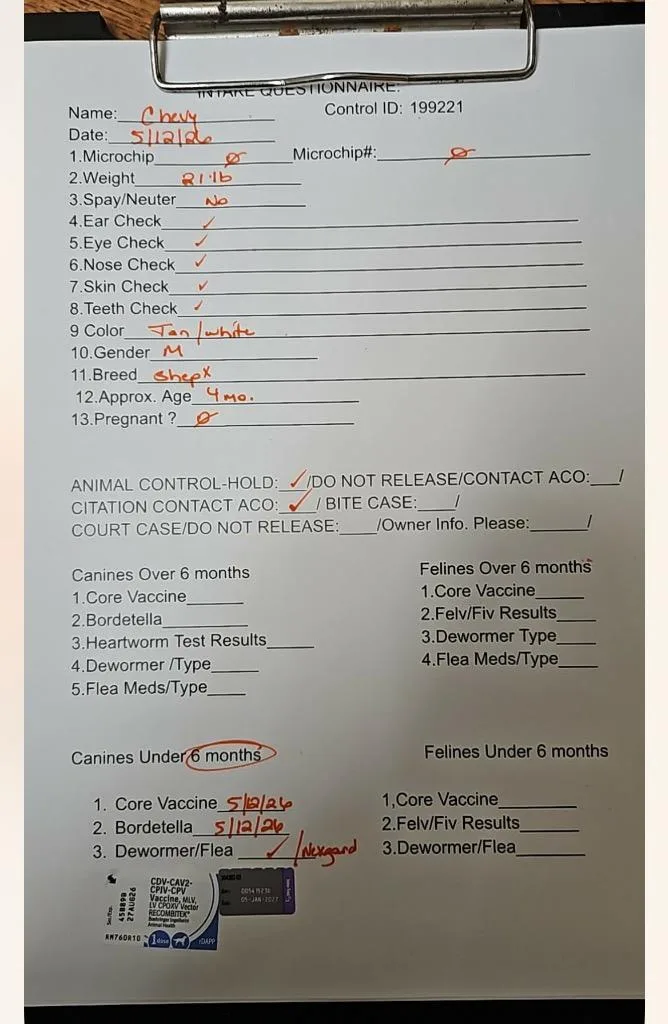 INTAKE QUESTIONNAIRE:
Name: Chevy Control ID: 199221
Date: 5/12/26
1.Microchip Ø Microchip#: Ø
2.Weight 21.1b
3.Spay/Neuter No
4.Ear Check ✓
5.Eye Check ✓
6.Nose Check ✓
7.Skin Check ✓
8.Teeth Check ✓
9 Color Tan/white
10.Gender M
11.Breed ShepX
12.Approx. Age 4 mo.
13.Pregnant ? Ø
ANIMAL CONTROL-HOLD: ✓/DO NOT RELEASE/CONTACT ACO:___/
CITATION CONTACT ACO: ✓/ BITE CASE:____/
COURT CASE/DO NOT RELEASE:____/Owner Info. Please:______/
Canines Over 6 months
1.Core Vaccine______
2.Bordetella_________
3.Heartworm Test Results_____
4.Dewormer /Type_____
5.Flea Meds/Type____
Felines Over 6 months
1.Core Vaccine_____
2.Felv/Fiv Results____
3.Dewormer Type____
4.Flea Meds/Type____
Canines Under 6 months
1. Core Vaccine 5/12/26
2. Bordetella 5/12/26
3. Dewormer/Flea ✓/Nexgard
Felines Under 6 months
1,Core Vaccine________
2.Felv/Fiv Results______
3.Dewormer/Flea_______
CDV-CAV2-
CPIV-CPV
Vaccine, MLV,
LV CPOXV Vector
RECOMBITEK®
Boehringer Ingelheim
Animal Health
1 dose rDAPP
Ser/Exp.
45889B
27AUG26
05-JAN-2027